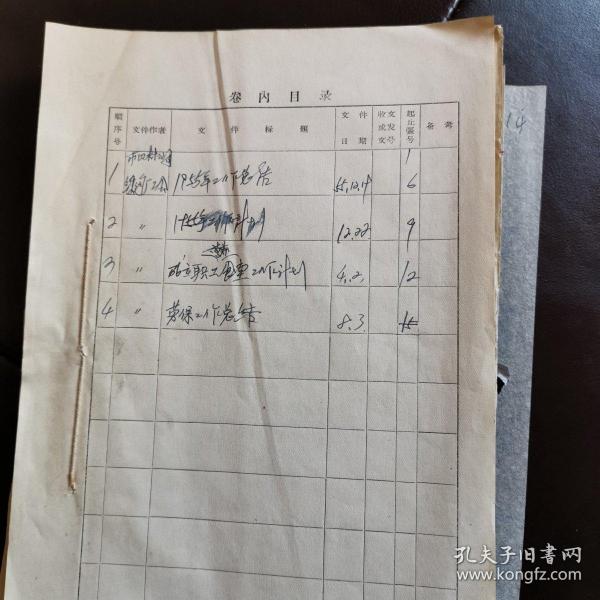 卷内目录
順序号 文件作者 文件标题 文件日期 收文或发文号 起止張号 备考
1
1 1955年工作总结 55.12.19 6
2 〃 1955年工作计划 12.22 9
3 〃 成立职工 工作计划 4.2. 12
4 〃 劳保工作总结 8.3. 15
14
孔夫子旧書网
www.kongfz.com